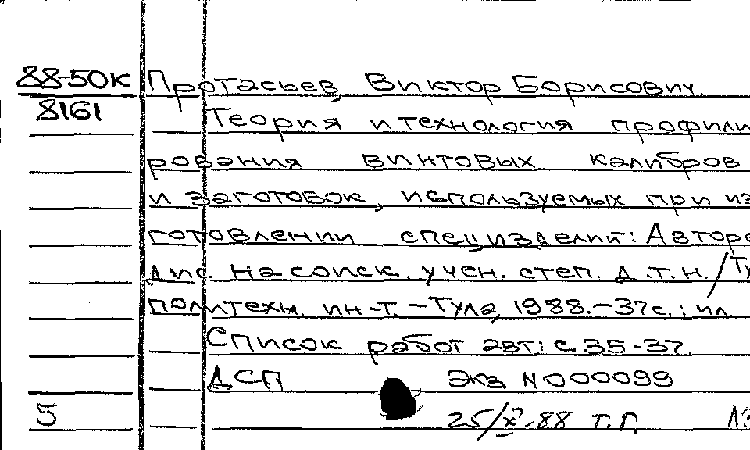 88-50к Протасьев, Виктор Борисович
8161 Теория и технология профили
рования винтовых калибров
и заготовок, используемых при из
готовлении специзделий: Авторе
дис. на соиск. учен. степ. д.т.н. / Ту
политехн. ин-т. - Тула, 1988. - 37с.: ил
Список работ авт: с. 35-37.
ДСП Экз N 000099
5 25/X-88 т. Г.